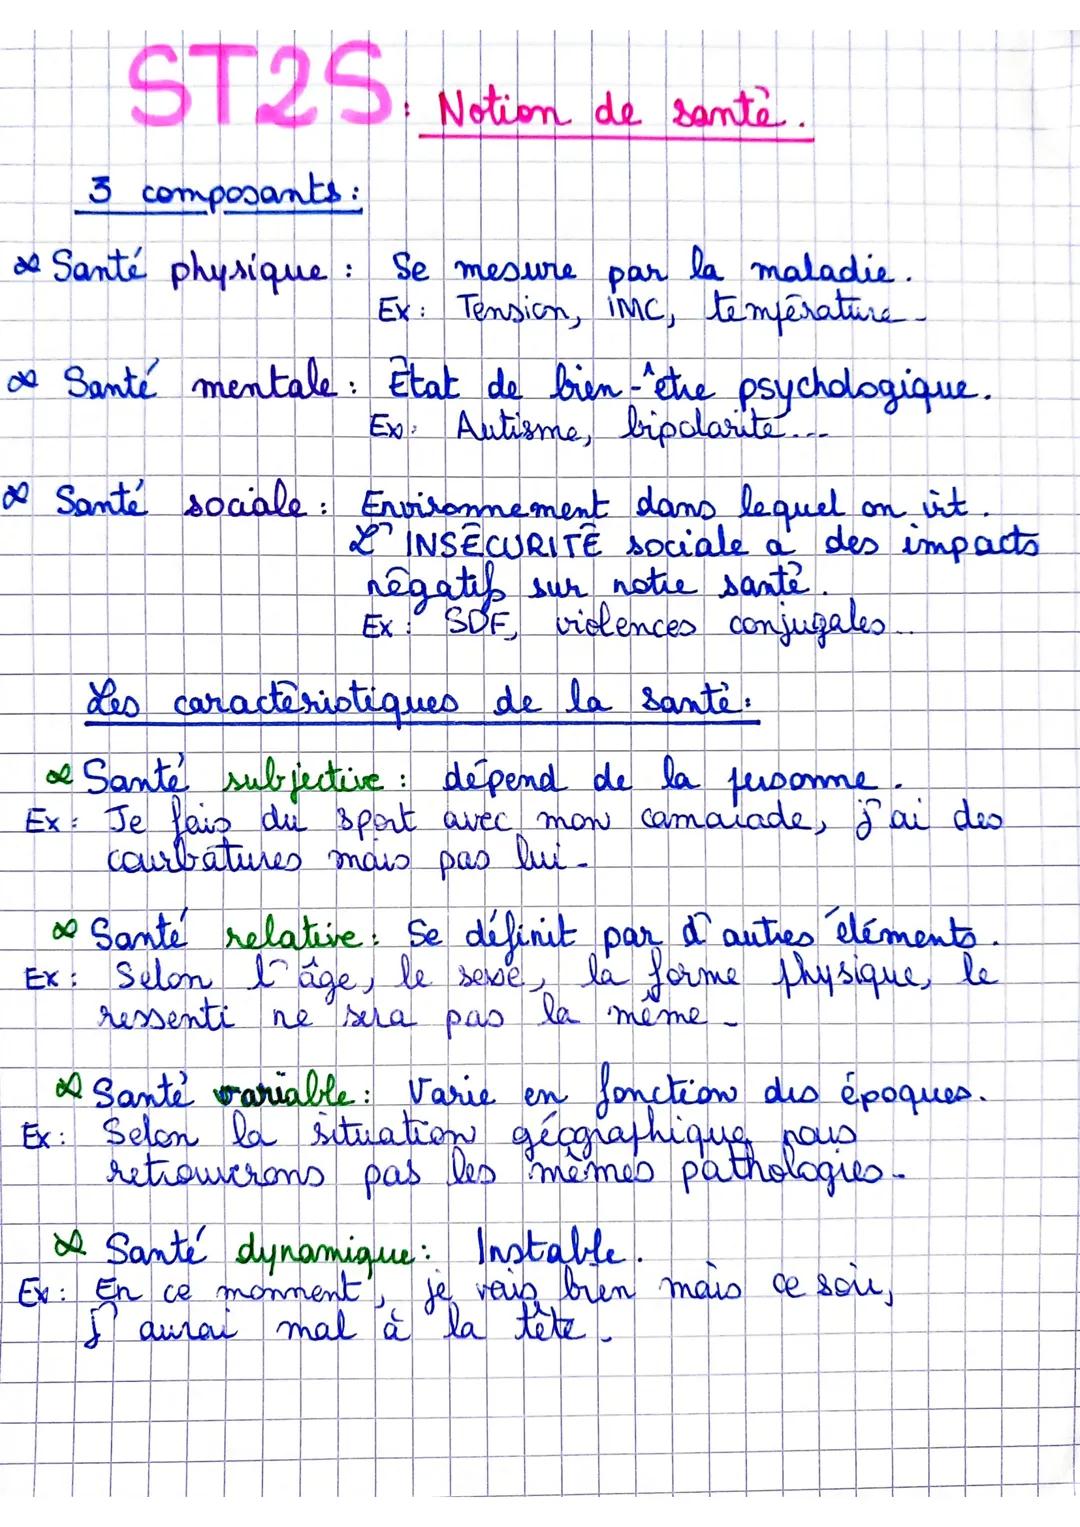 ST2S : Notion de santé.
3 composants :
Santé physique : Se mesure par la maladie.
Ex : Tension, iMC, température.
Santé mentale : État de bien-être psychologique.
Ex : Autisme, bipolarité...
Santé sociale : Environnement dans lequel on vit.
L'INSÉCURITÉ sociale a des impacts
négatifs sur notre santé.
Ex : SDF, violences conjugales...
Les caractéristiques de la santé :
Santé subjective : dépend de la personne.
Ex : Je fais du sport avec mon camarade, j'ai des
courbatures mais pas lui.
Santé relative : Se définit par d'autres éléments.
Ex : Selon l'âge, le sexe, la forme physique, le
ressenti ne sera pas la même.
Santé variable : Varie en fonction des époques.
Ex : Selon la situation géographique nous
retrouverons pas les mêmes pathologies.
Santé dynamique : Instable.
Ex : En ce monment, je vais bien mais ce soir,
j'aurai mal à la tête.